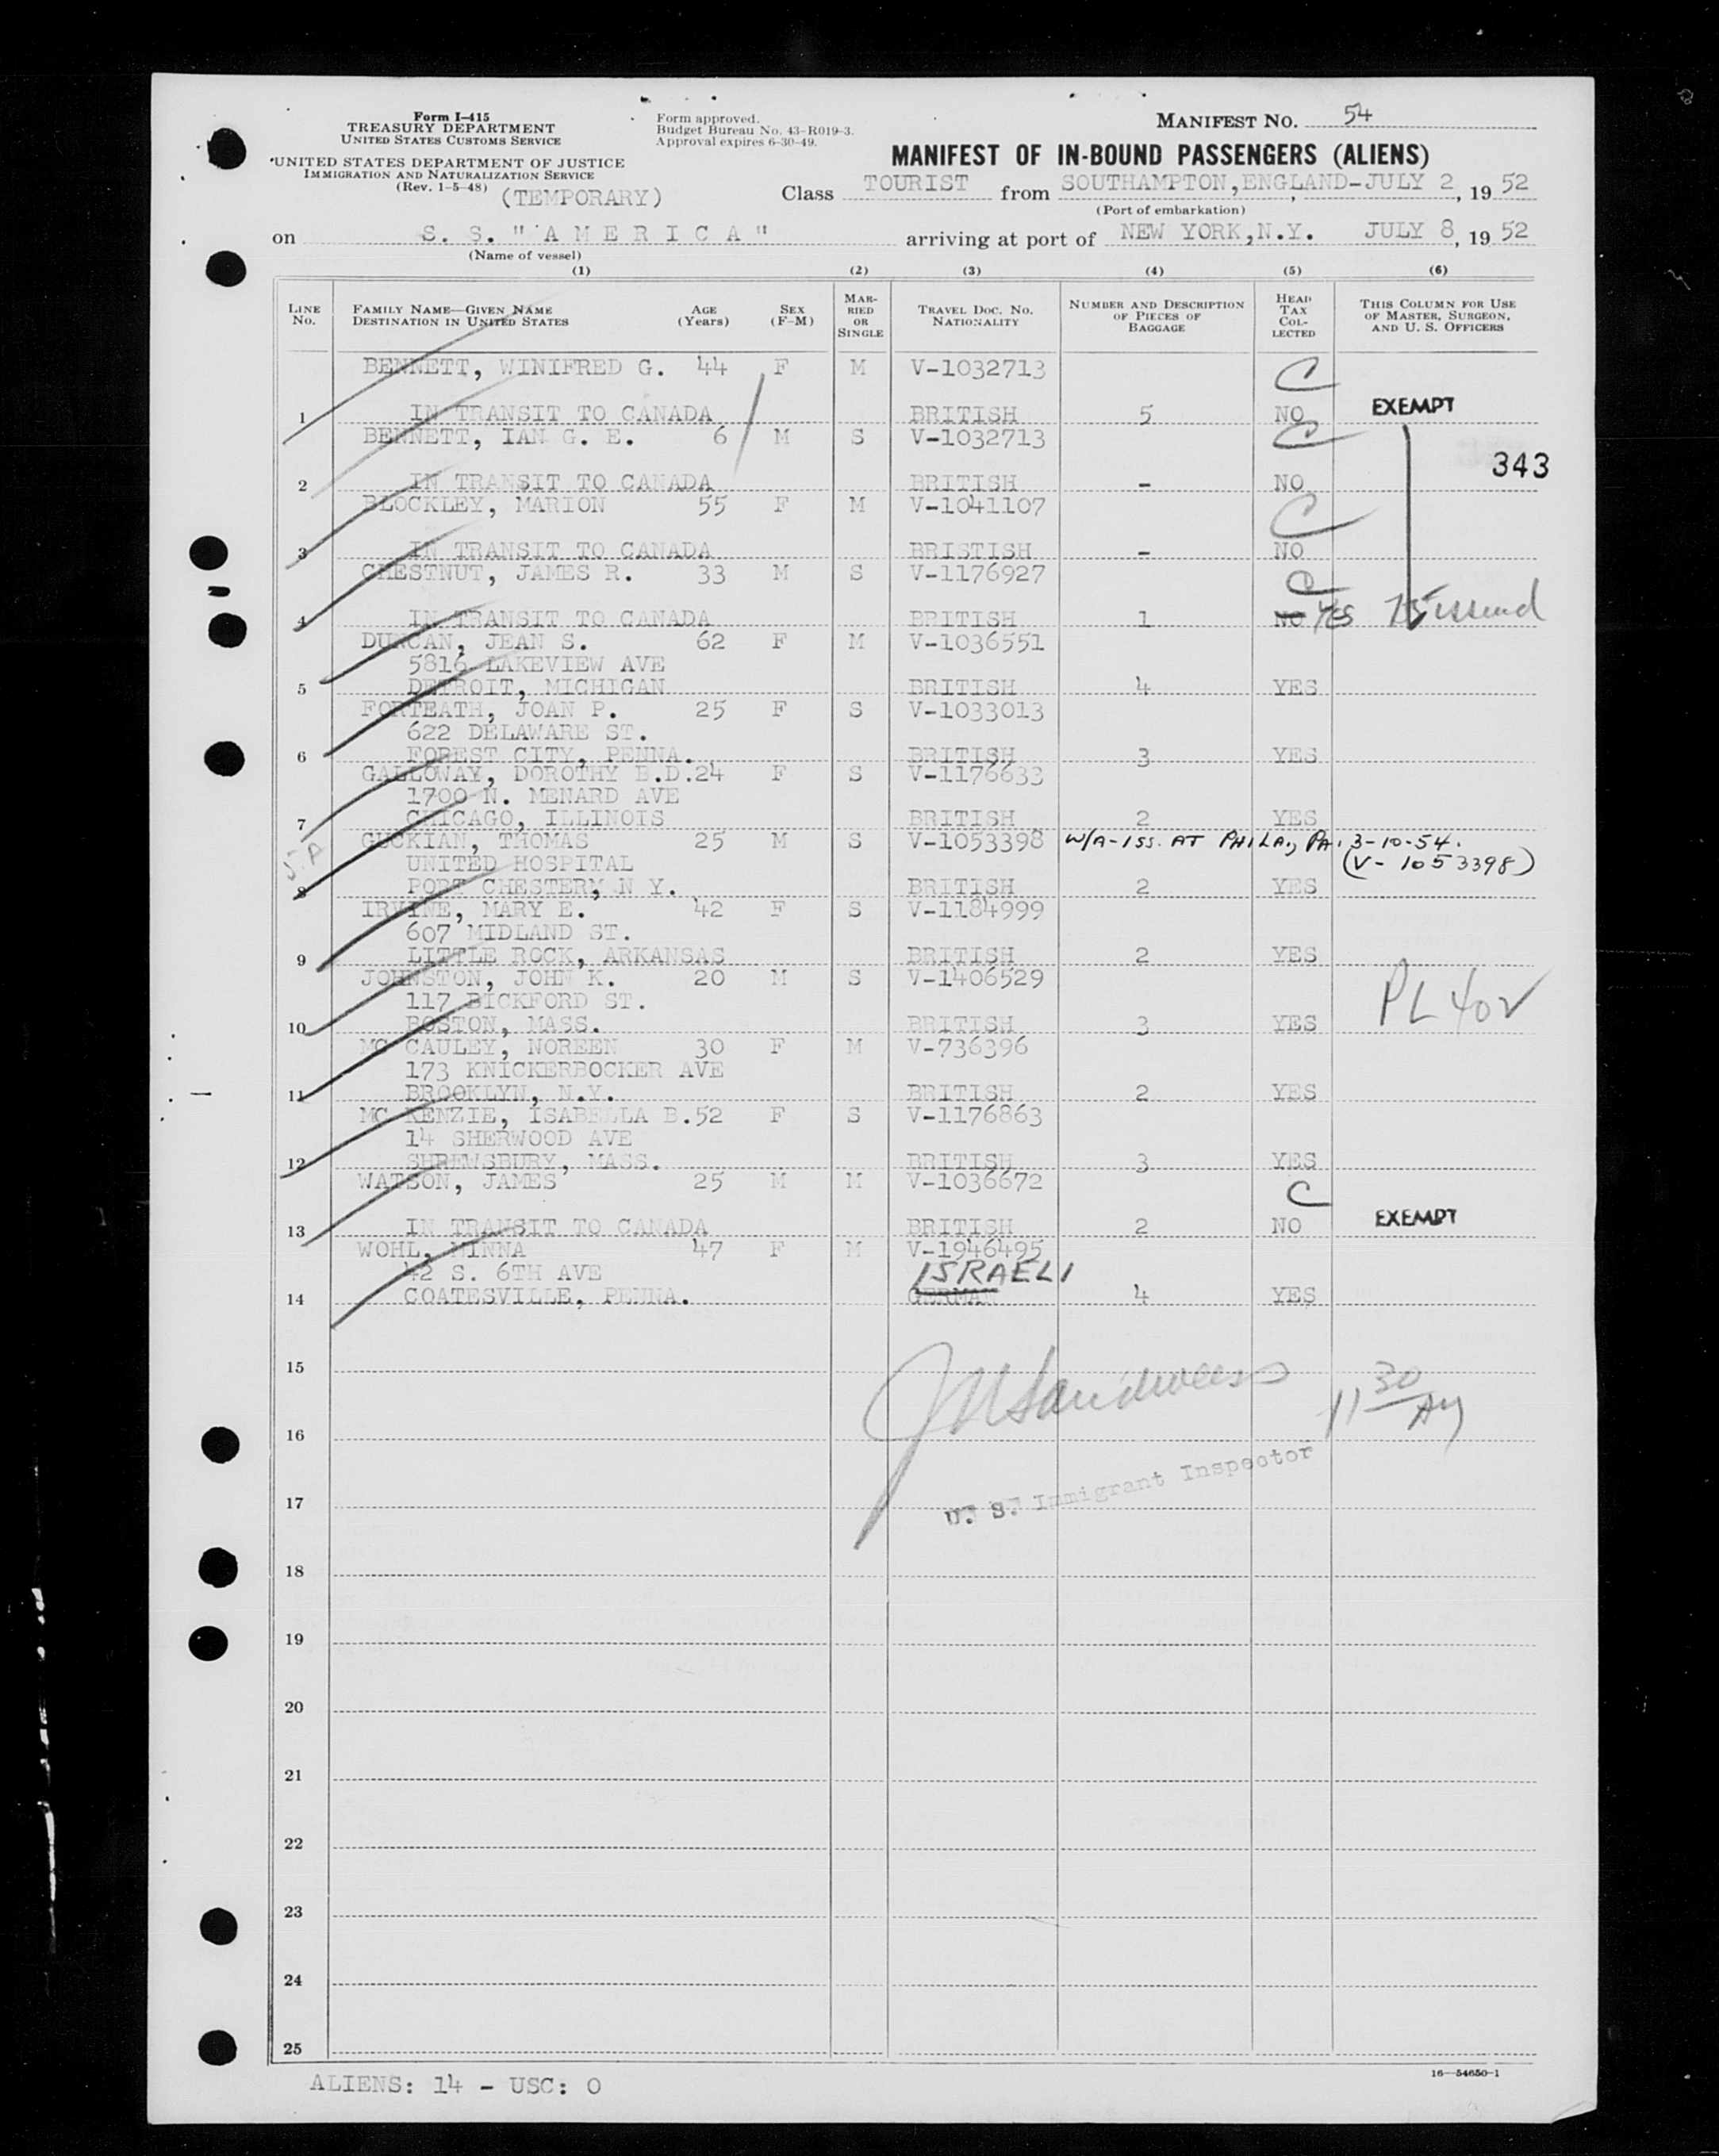 Form I-415
TREASURY DEPARTMENT
UNITED STATES CUSTOMS SERVICE
UNITED STATES DEPARTMENT OF JUSTICE
IMMIGRATION AND NATURALIZATION SERVICE
(Rev. 1-5-48) (TEMPORARY)
Form approved.
Budget Bureau No. 43-R019-3.
Approval expires 6-30-49.
MANIFEST NO. 54
MANIFEST OF IN-BOUND PASSENGERS (ALIENS)
Class TOURIST from SOUTHAMPTON, ENGLAND-JULY 2, 19 52
(Port of embarkation)
on S. S. "AMERICA" arriving at port of NEW YORK, N.Y. JULY 8, 19 52
(Name of vessel)
(1) (2) (3) (4) (5) (6)
LINE No. FAMILY NAME—GIVEN NAME DESTINATION IN UNITED STATES AGE (Years) SEX (F-M) MARRIED OR SINGLE TRAVEL DOC. NO. NATIONALITY NUMBER AND DESCRIPTION OF PIECES OF BAGGAGE HEAD TAX COLLECTED THIS COLUMN FOR USE OF MASTER, SURGEON, AND U. S. OFFICERS
BENNETT, WINIFRED G. 44 F M V-1032713 C
1 IN TRANSIT TO CANADA BRITISH 5 NO EXEMPT
BENNETT, IAN G. E. 6 M S V-1032713 C
343
2 IN TRANSIT TO CANADA BRITISH - NO
BLOCKLEY, MARION 55 F M V-1041107 C
3 IN TRANSIT TO CANADA BRISTISH - NO
CHESTNUT, JAMES R. 33 M S V-1176927 C
4 IN TRANSIT TO CANADA BRITISH 1 NO YES issued
DUNCAN, JEAN S. 62 F M V-1036551
5816 LAKEVIEW AVE
5 DETROIT, MICHIGAN BRITISH 4 YES
FORTEATH, JOAN P. 25 F S V-1033013
622 DELAWARE ST.
6 FOREST CITY, PENNA. BRITISH 3 YES
GALLOWAY, DOROTHY E.D. 24 F S V-1176633
1700 N. MENARD AVE
7 CHICAGO, ILLINOIS BRITISH 2 YES
GUCKIAN, THOMAS 25 M S V-1053398 W/A-ISS. AT PHILA., PA. 3-10-54.
UNITED HOSPITAL (V-1053398)
8 PORT CHESTER, N Y. BRITISH 2 YES
IRVINE, MARY E. 42 F S V-1184999
607 MIDLAND ST.
9 LITTLE ROCK, ARKANSAS BRITISH 2 YES
JOHNSTON, JOHN K. 20 M S V-1406529
117 BICKFORD ST.
10 BOSTON, MASS. BRITISH 3 YES PL 40
MC CAULEY, NOREEN 30 F M V-736396
173 KNICKERBOCKER AVE
11 BROOKLYN, N.Y. BRITISH 2 YES
MC KENZIE, ISABELLA B. 52 F S V-1176863
14 SHERWOOD AVE
12 SHREWSBURY, MASS. BRITISH 3 YES
WATSON, JAMES 25 M M V-1036672 C
13 IN TRANSIT TO CANADA BRITISH 2 NO EXEMPT
WOHL, MINNA 47 F M V-1946495
42 S. 6TH AVE ISRAELI
14 COATESVILLE, PENNA. GERMAN 4 YES
15
11 30 AM
16
U. S. Immigrant Inspector
17
18
19
20
21
22
23
24
25
16—54650-1
ALIENS: 14 - USC: 0